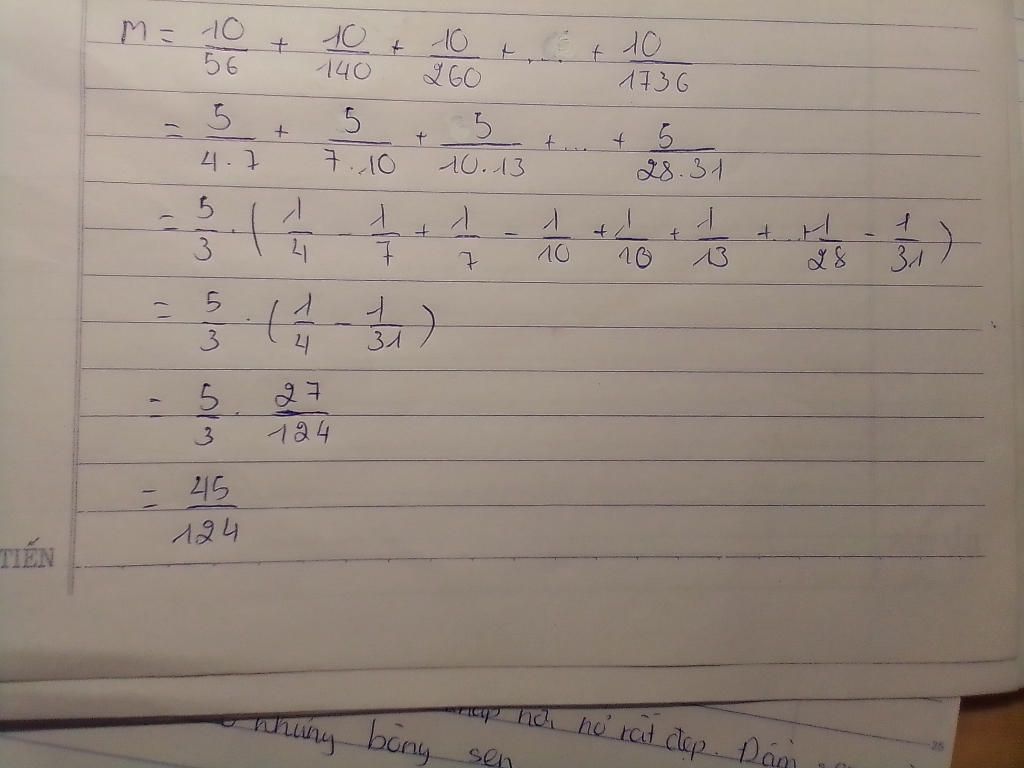 M = 10/56 + 10/140 + 10/260 + ... + 10/1736
= 5/4.7 + 5/7.10 + 5/10.13 + ... + 5/28.31
= 5/3 . ( 1/4 - 1/7 + 1/7 - 1/10 + 1/10 + 1/13 + ... + 1/28 - 1/31 )
= 5/3 . ( 1/4 - 1/31 )
= 5/3 . 27/124
= 45/124
TIẾN
nở rất đẹp. Đầm
những bông sen
25